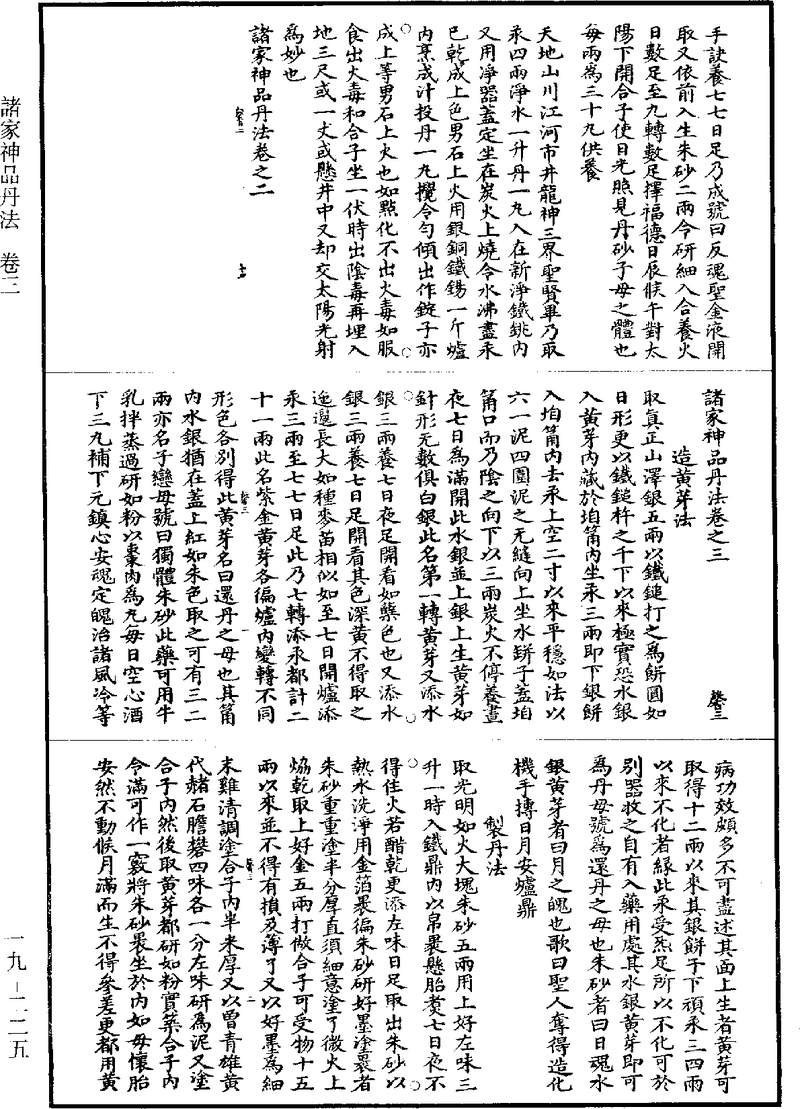 諸家神品丹法 卷三
一九-二二五
手訣養七七日足乃成號曰反魂聖金液開
取又依前入生朱砂二兩令研細入合養火
日數足至九轉數足擇福德日辰候午對太
陽下開合子使日光照見丹砂子母之體也
每兩為三十九供養
天地山川江河市井龍神三界聖賢畢乃取
汞四兩淨水一升丹一丸入在新淨鐵銚內
又用淨器蓋定坐在炭火上燒令水沸盡汞
已乾成上色男石上火用銀銅鐵錫一斤爐
內烹成汁投丹一丸攪令勻傾出作錠子亦
成上等男石上火也如點化不出火毒如服
食出火毒和合子坐一伏時出陰毒再埋入
地三尺或一丈或懸井中又却交太陽光射
為妙也
諸家神品丹法卷之二
諸家神品丹法卷之三
造黃芽法
取真正山澤銀五兩以鐵鎚打之為餅圓如
日形更以鐵鎚杵之千下以來極實恐水銀
入黃芽內藏於垍筩內坐汞三兩即下銀餅
入垍筩內去汞上空二寸以來平穩如法以
六一泥四圍泥之无縫向上坐水缾子蓋垍
筩口而乃陰之向下以三兩炭火不停養晝
夜七日為滿開此水銀並上銀上生黃芽如
針形无數俱白銀此名第一轉黃芽又添水
銀三兩養七日夜足開看如蘗色也又添水
銀三兩養七日足開看其色深黃不得取之
迤邐長大如種麥苗相似如至七日開爐添
汞三兩至七七日足此乃七轉添汞都計二
十一兩此名紫金黃芽各徧爐內變轉不同
形色各別得此黃芽名曰還丹之母也其筩
內水銀猶在蓋上紅如朱色取之可有三二
兩亦名子戀母號曰獨體朱砂此藥可用牛
乳拌蒸過研如粉以棗肉為丸每日空心酒
下三丸補下元鎮心安魂定魄治諸風冷等
病功效頗多不可盡述其面上生者黃芽可
取得十二兩以來其銀餅子下頑汞三四兩
以來不化者緣此汞受炁足所以不化可於
別器收之自有入藥用處其水銀黃芽即可
為丹母號為還丹之母也朱砂者曰日魂水
銀黃芽者曰月之魄也歌曰聖人奪得造化
機手摶日月安爐鼎
製丹法
取光明如火大塊朱砂五兩用上好左味三
升一時入鐵鼎內以帛裹懸胎煑七日夜不
得住火若醋乾更添左味日足取出朱砂以
熱水洗淨用金箔裹徧朱砂研好墨塗裹者
朱砂重重塗半分厚直須細意塗了微火上
煿乾取上好金五兩打做合子可受物十五
兩以來並不得有損及薄了又以好墨為細
末雞清調塗合子內半米厚又以曾青雄黃
代赭石膽礬四味各一分左味研為泥又塗
合子內然後取黃芽都研如粉實築合子內
令滿可作一竅將朱砂裹坐於內如母懷胎
安然不動候月滿而生不得參差更都用黃